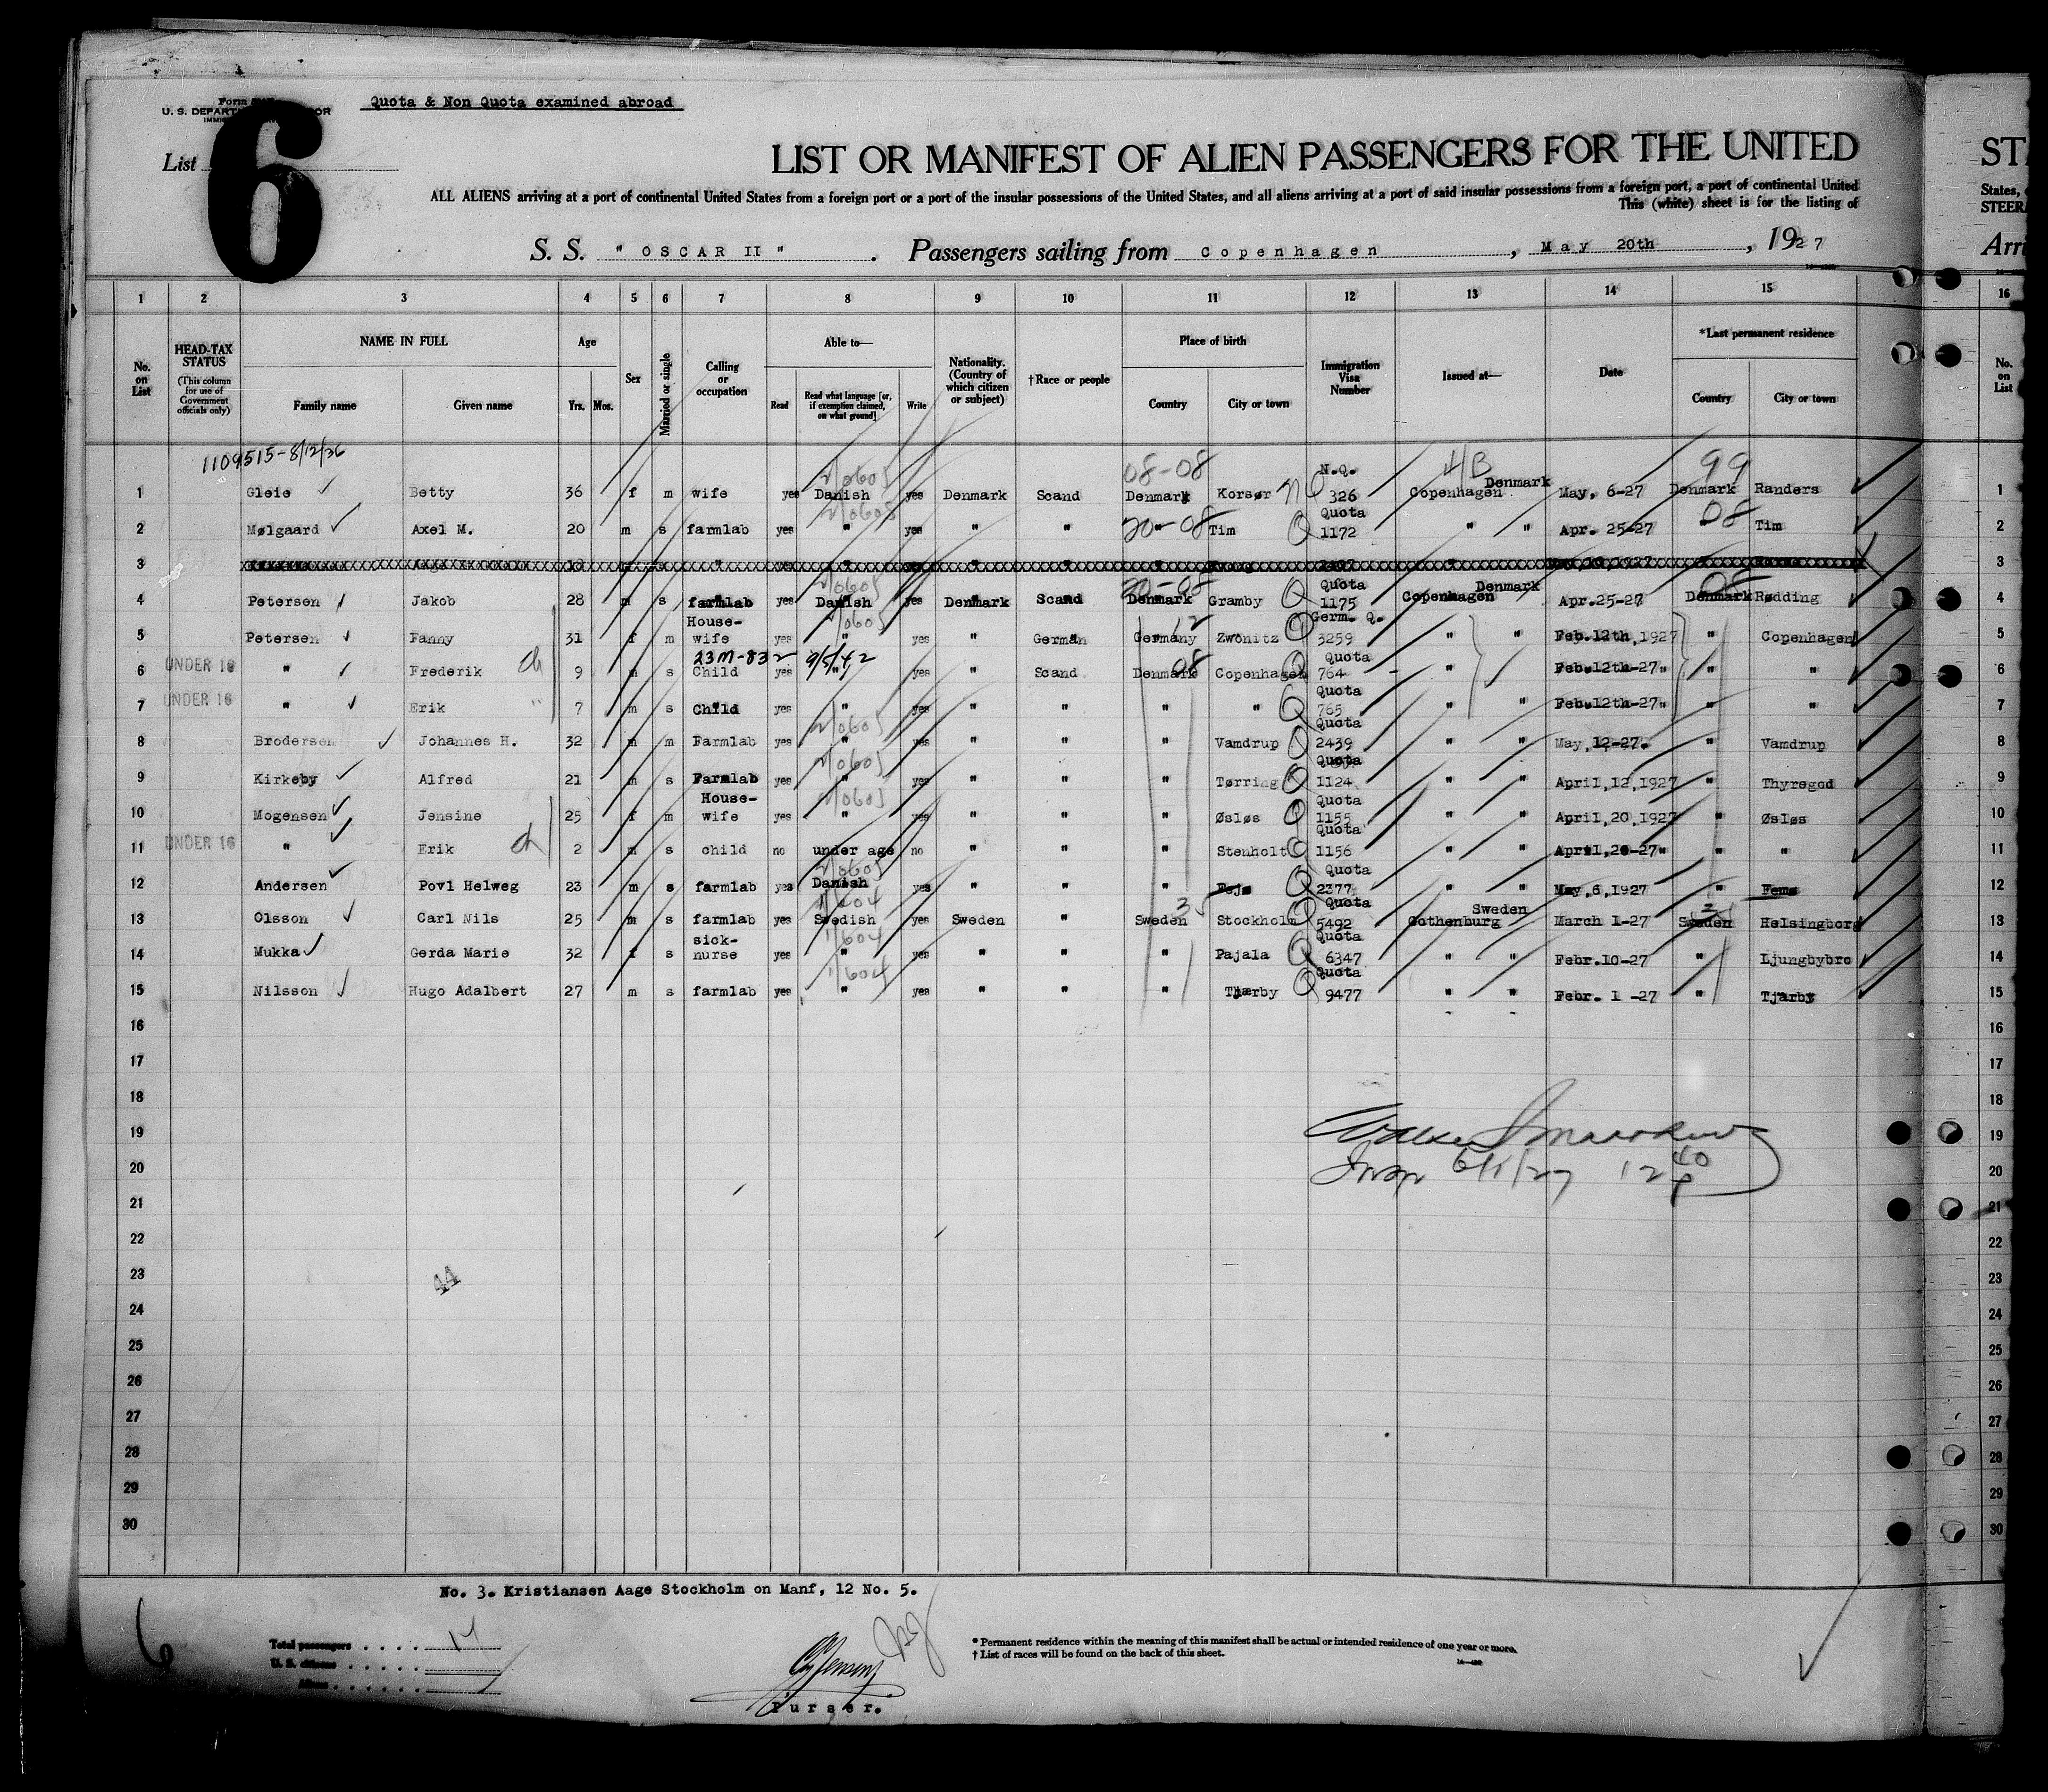 Quota & Non Quota examined abroad
Form
U. S. DEPARTMENT OF LABOR
List 6
LIST OR MANIFEST OF ALIEN PASSENGERS FOR THE UNITED
ST
ALL ALIENS arriving at a port of continental United States from a foreign port or a port of the insular possessions of the United States, and all aliens arriving at a port of said insular possessions from a foreign port, a port of continental United
States,
This (white) sheet is for the listing of
STEER
S. S. " OSCAR II ". Passengers sailing from Copenhagen, May 20th, 1927
Arri
1 2 3 4 5 6 7 8 9 10 11 12 13 14 15 16
No. on List
HEAD-TAX STATUS (This column for use of Government officials only)
NAME IN FULL Family name Given name
Age Yrs. Mos.
Sex
Married or single
Calling or occupation
Able to— Read Read what language [or, if exemption claimed, on what ground] Write
Nationality. (Country of which citizen or subject)
†Race or people
Place of birth Country City or town
Immigration Visa Number
Issued at—
Date
*Last permanent residence Country City or town
No. on List
1109515-8/12/36
2/0605 08-08 N.Q. 4/B 99
1 Gleie Betty 36 f m wife yes Danish yes Denmark Scand Denmark Korsør 326 Copenhagen Denmark May, 6-27 Denmark Randers 1
2/0605 Quota
2 Mølgaard Axel M. 20 m s farmlab yes " yes " " 20-08 Tim Q 1172 " " Apr. 25-27 " 08 Tim 2
3 3
2/0605 20-08 Quota 08
4 Petersen Jakob 28 m s farmlab yes Danish yes Denmark Scand Denmark Gramby Q 1175 Copenhagen Denmark Apr.25-27 Denmark Rødding 4
2/0605 Germ. Q.
5 Petersen Fanny 31 f m House-wife yes " yes " German Germany Zwönitz Q 3259 " " Feb.12th,1927 " Copenhagen 5
23M-832 9/5/42 08 Quota
UNDER 16 6 " Frederik ch 9 m s Child yes " yes " Scand Denmark Copenhagen Q 764 " " Feb.12th-27" " " 6
Quota
UNDER 16 7 " Erik " 7 m s Child yes " yes " " " " Q 765 " " Feb.12th-27" " " 7
2/0605 Quota
8 Brodersen Johannes H. 32 m m Farmlab yes " yes " " " Vamdrup Q 2439 " " May,12-27. " Vamdrup 8
2/0605 Quota
9 Kirkeby Alfred 21 m s Farmlab yes " yes " " " Tørring Q 1124 " " April,12,1927 " Thyregod 9
2/0605 Quota
10 Mogensen Jensine 25 f m House-wife yes " yes " " " Øsløs Q 1155 " " April,20,1927 " Øsløs 10
Quota
UNDER 16 11 " Erik ch 2 m s child no under age no " " " Stenholt Q 1156 " " April,20-27" " " 11
2/0605 Quota
12 Andersen Povl Helweg 23 m s farmlab yes Danish yes " " " Fejø Q 2377 " " May,6,1927 " Femø 12
1/604 35 Quota
13 Olsson Carl Nils 25 m s farmlab yes Swedish yes Sweden " Sweden Stockholm Q 5492 Gothenburg Sweden March 1-27 Sweden Helsingborg 13
1/604 Quota
14 Mukka Gerda Marie 32 f s sick-nurse yes " yes " " " Pajala Q 6347 " " Febr.10-27 " Ljungbybro 14
1/604 Quota
15 Nilsson Hugo Adalbert 27 m s farmlab yes " yes " " " Tjärby Q 9477 " " Febr. 1 -27 " Tjärby 15
16 16
17 17
18 18
19 19
20 6/1/27 12 40 P 20
21 21
22 22
23 44 23
24 24
25 25
26 26
27 27
28 28
29 29
30 30
No. 3. Kristiansen Aage Stockholm on Manf, 12 No. 5.
6
Total passengers . . . . 14
U. S. citizens . . . . .
Aliens . . . . . .
Purser.
* Permanent residence within the meaning of this manifest shall be actual or intended residence of one year or more.
† List of races will be found on the back of this sheet.